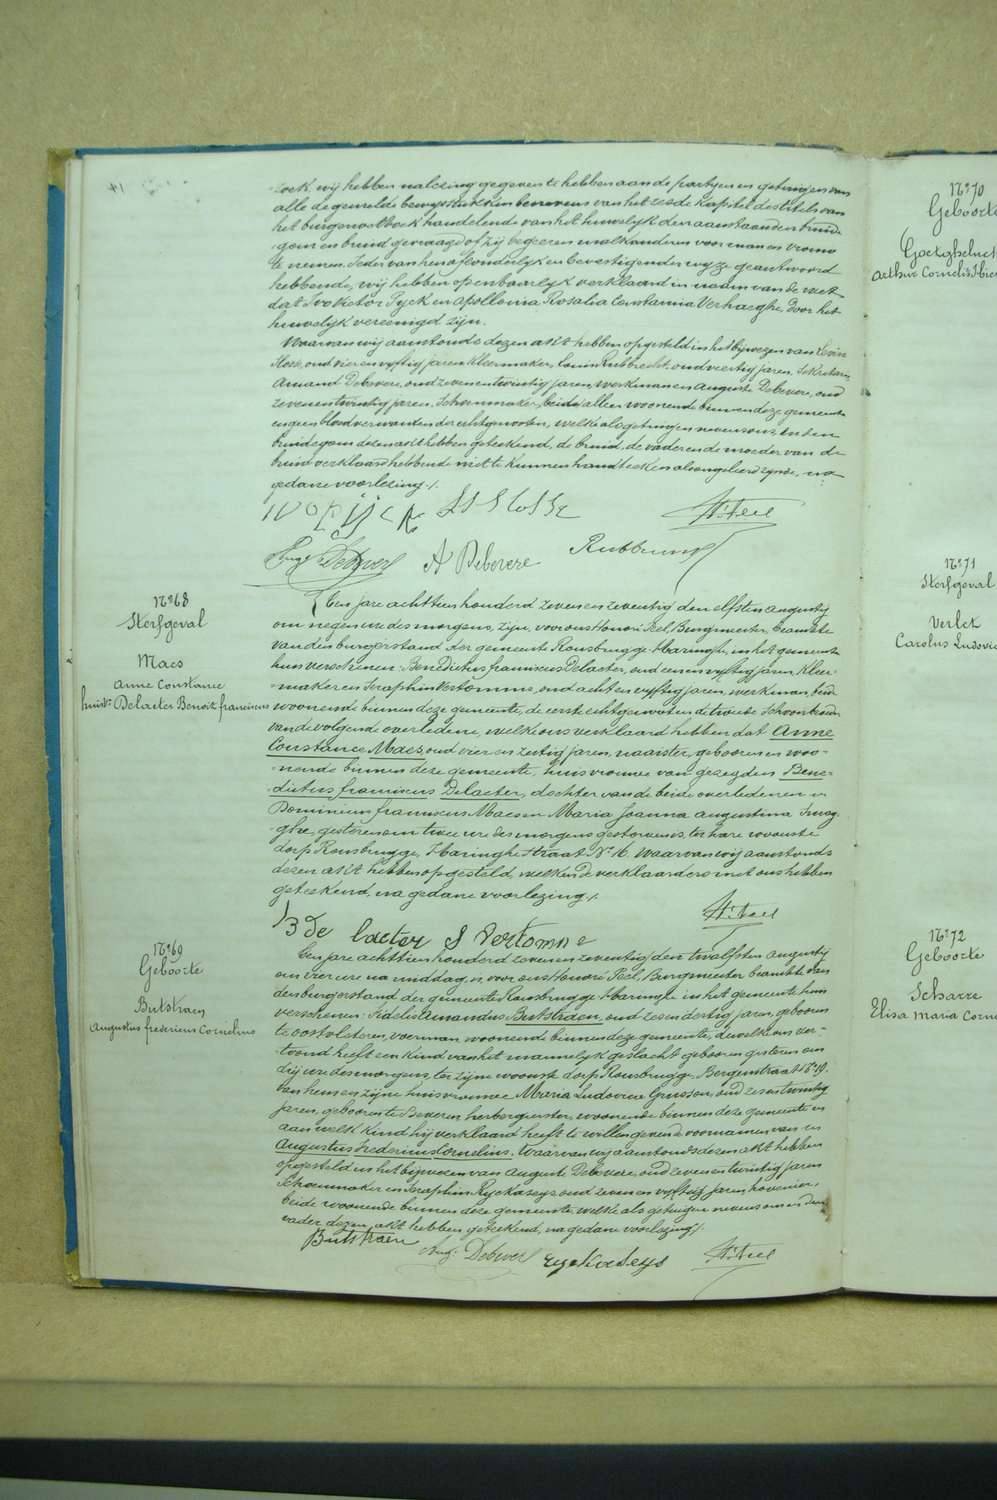 zoek, wij hebben nalezing gegeven te hebben aan de partyen en getuigen van
alle de gemelde bewysstukken benevens van het zesde kapittel des titels van
het burgerwetboek handelende van het huwelijk den aanstaanden bruide-
gom en bruid gevraagd of zij begeeren malkanderen voor man en vrouw
te nemen. Ieder van hen afzonderlijk en bevestigender wyze geantwoord
hebbende, wij hebben openbaarlyk verklaard in naam van de wet
dat Ivo Victor Tyck en Apollonia Rosalia Constantia Verhaeghe, door het
huwelijk vereenigd zijn.
Waarvan wij aanstonds dezen akt hebben opgesteld in het bijwezen van
oud vier en vyftig jaren kleermaker, Louis Rubbrecht, oud veertig jaren, Sekretaris,
Amand Debevere, oud zeven en twintig jaren, werkman en Auguste Debevere, oud
zeven en twintig jaren, Schoenmaker, beide allen woonende binnen deze gemeente
en geen bloedverwanten der echtgenooten, welke als getuigen nevens ons en den
bruidegom dezen akt hebben geteekend, de bruid, de vader en de moeder van de
bruid verklaard hebbende niet te kunnen handteeken als ongeleerd zynde, na
gedane voorlezing /.
Ivo Tijck
H. Peel
Aug. Debever A Debevere Rubbrecht
No 68
Sterfgeval
Maes
Anne Constance
huisv. Delaeter Benoit franciscus
Een jare achttien honderd zeven en zeventig den elfsten augusty
om negen ure des morgens, zijn, voor ons Honoré Peel, Burgmeester, beambte
van den burgerstand der gemeente Rousbrugge Haringhe, in het gemeente
huis verschenen: Benedictus franciscus Delaeter, oud een en vyftig jaren, kleer-
maker en Seraphin Vertomme, oud acht en vyftig jaren, werkman, beide
woonende binnen deze gemeente, de eerste echtgenoot en de tweede Schoonbroeder
van de volgende overledene, welke ons verklaard hebben dat Anne
Constance Maes, oud vier en zestig jaren, naaister, geboren en woo-
nende binnen deze gemeente, huisvrouwe van gezeyden Bene-
dictus franciscus Delaeter, dochter van de beide overledenen
Dominicus franciscus Maes en Maria Joanna Augustina
ghe, gisteren om twee ure des morgens gestorven is, ter hare woonste
dorp Rousbrugge, Haringhe Straat No 16. Waarvan wij aanstonds
dezen akt hebben opgesteld, welken de verklaarders met ons hebben
geteekend, na gedane voorlezing /.
H. Peel
B de laeter S Vertomme
No 69
Geboorte
Butstraen
Augustus fredericus Cornelius
Een jare achttien honderd zeven en zeventig den twalfsten augusty
om vier ure na middag, is voor ons Honoré Peel, Burgmeester beambte van
den burgerstand der gemeente Rousbrugge Haringhe in het gemeente huis
verschenen: Fidelis Amandus Butstraen, oud zes en dertig jaren, geboren
te oostvleteren, voerman, woonende binnen deze gemeente, dewelke ons ver-
toond heeft een kind van het mannelyk geslacht geboren gisteren om
dry ure des morgens, ter zijne woonste dorp Rousbrugge, Bergenstraat No 19,
van hem en zijne huisvrouwe Maria Ludovica Grusson, oud zes en twintig
jaren, geboren te Beveren herbergierster, woonende binnen deze gemeente en
aan welk kind hij verklaard heeft te willen geven de voornamen van
Augustus Fredericus Cornelius. Waarvan wij aanstonds dezen akt hebben
opgesteld in het bijwezen van Auguste Debevere, oud zeven en twintig jaren
Schoenmaker en Seraphin Ryckaseys, oud zeven en vyftig jaren, hovenier,
beide woonende binnen deze gemeente welke als getuigen nevens ons en den
vader dezen akt hebben geteekend, na gedane voorlezing /.
Butstraen
Aug. Debever Ryckaseys H. Peel
No 70
Geboorte
Goetgheluck
Arthur Cornelis
No 71
Sterfgeval
Verlet
Carolus Ludovic
No 72
Geboorte
Scharre
Elisa Maria Corne